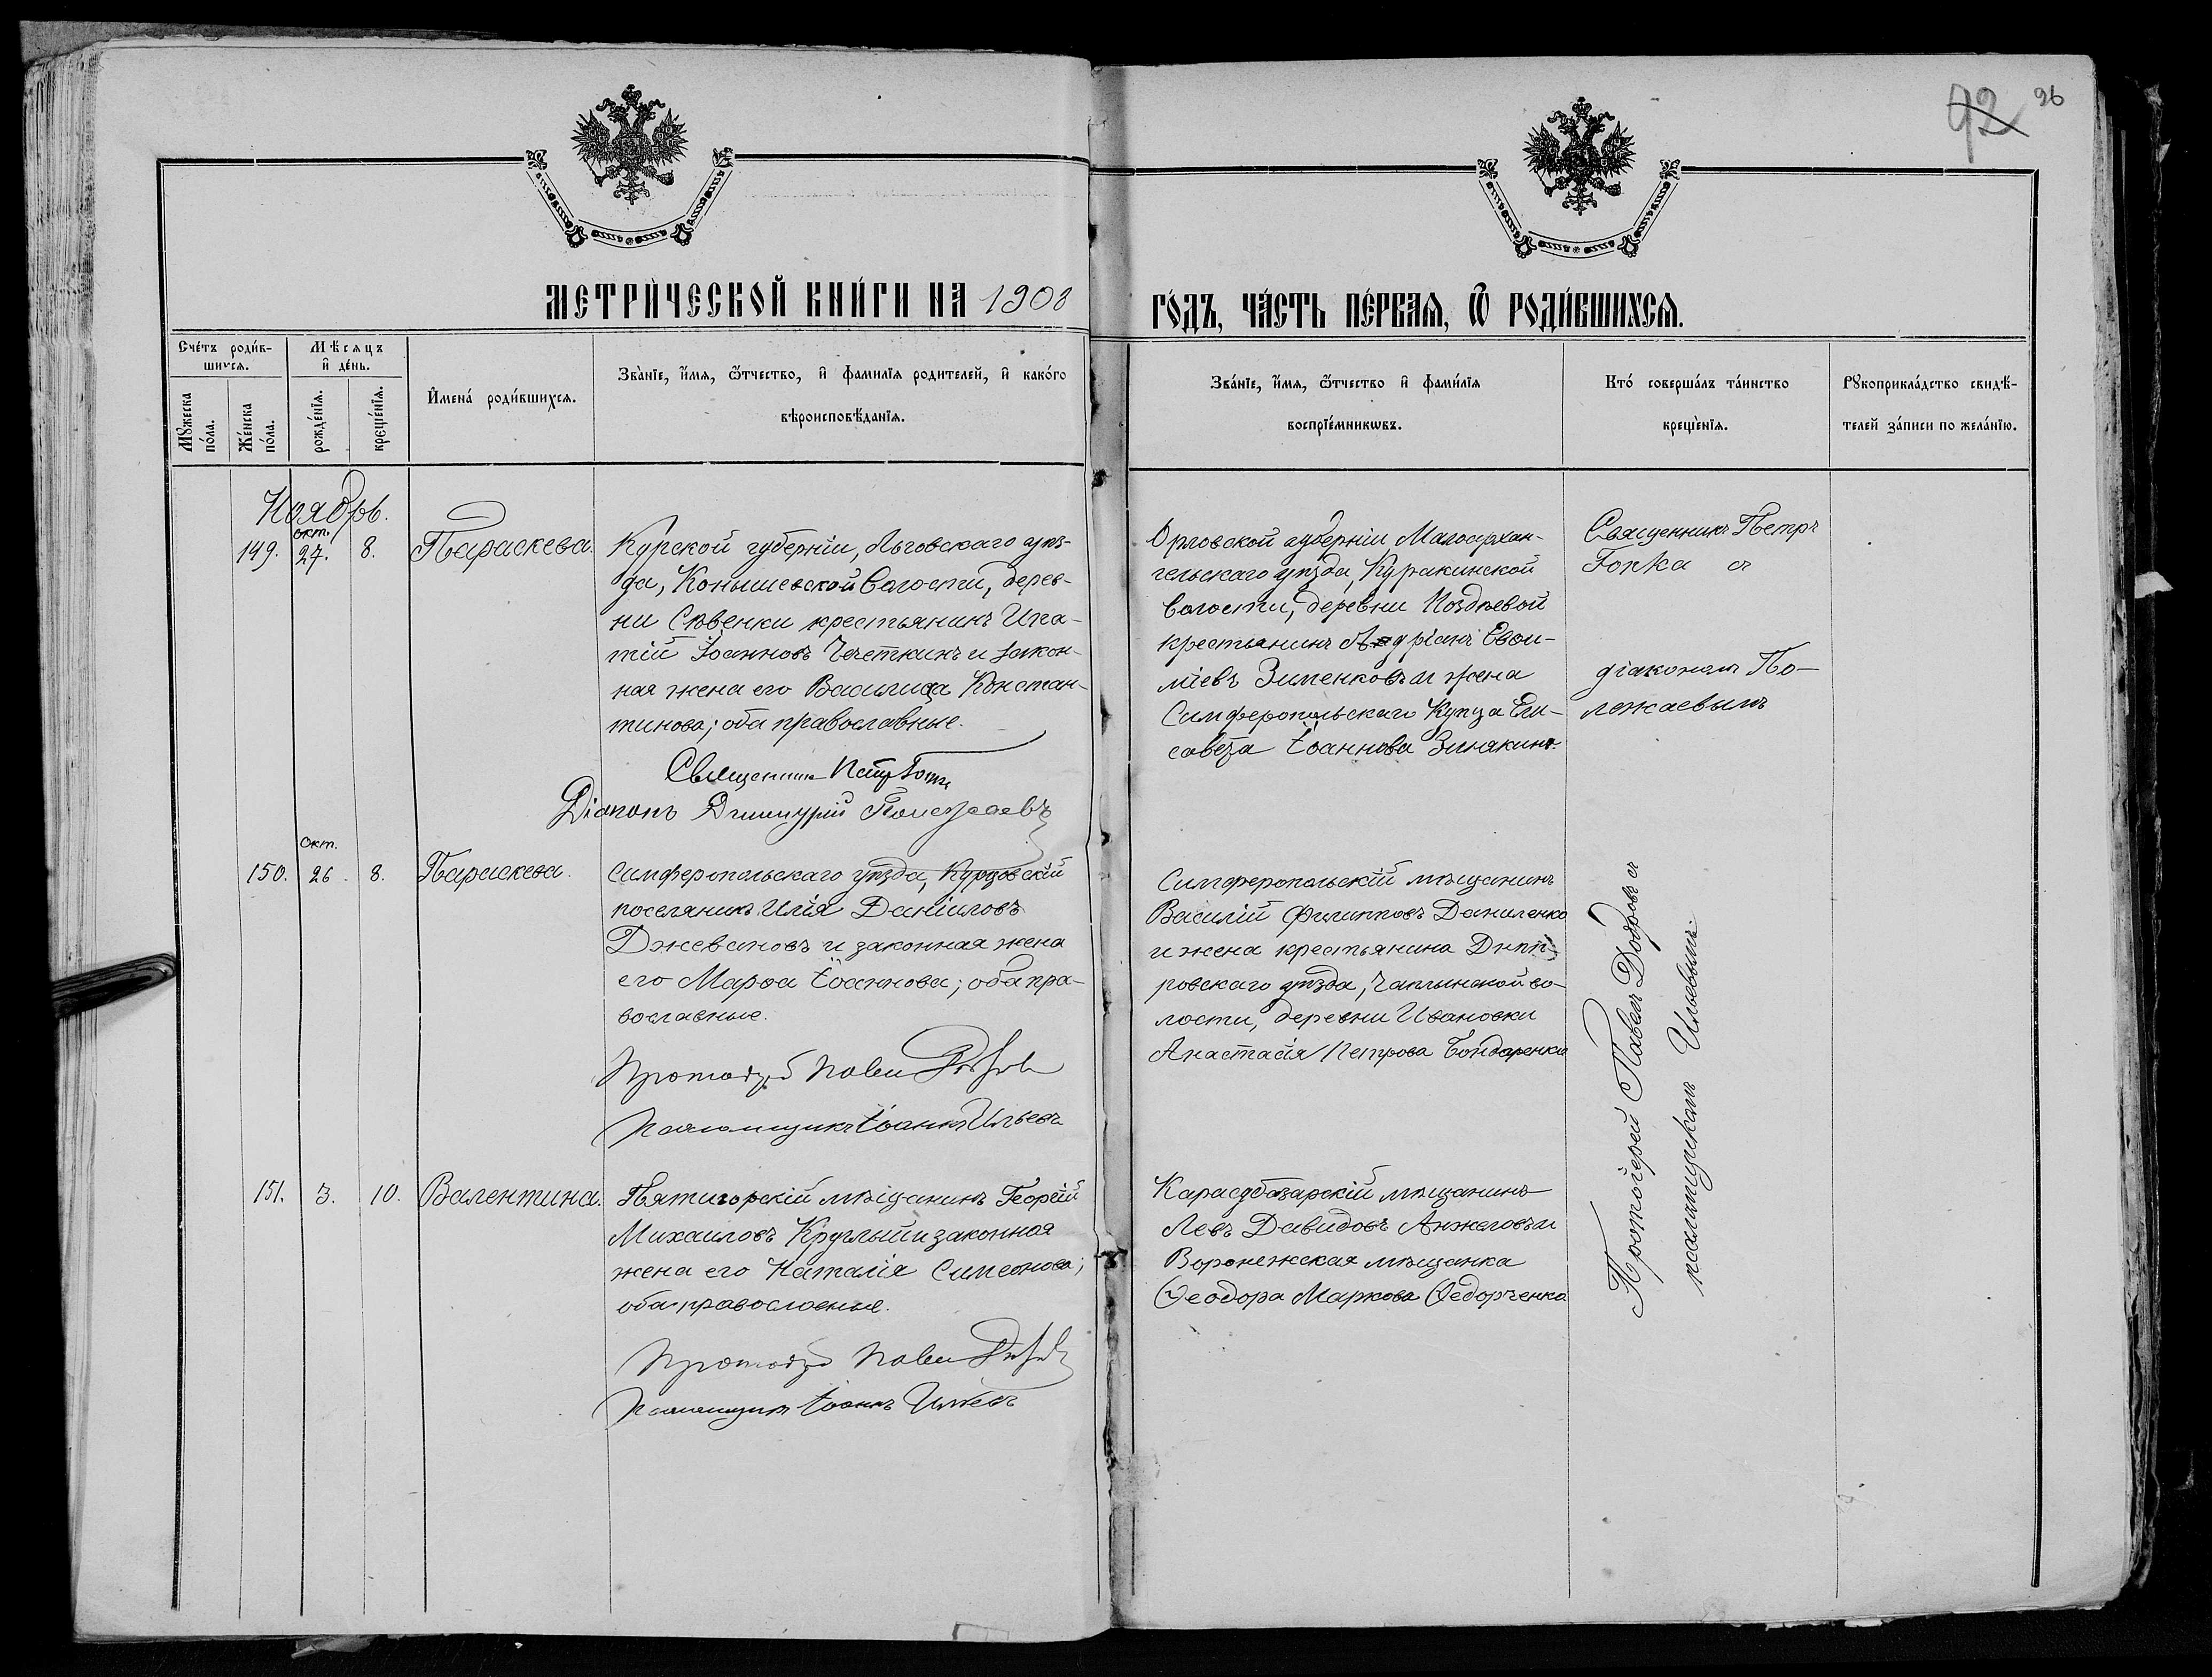 92 96
МЕТРИ́ЧЕСКОЙ КНИ́ГИ НА 1908
ГО́ДЪ, ЧА́СТЬ ПЕ́РВАЯ, Ѿ РОДИ́ВШИХСЯ.
Счéтъ роди́в-
шихся.
Мѣсяцъ
и҆ де́нь.
Мꙋ́жеска
по́ла.
Же́нска
по́ла.
рожде́нїя.
креще́нїя.
И҆мена́ роди́вшихся.
Зва́нїе, и҆́мя, ѻ҆́тчество, и҆ фамилїя родителей, и҆ како́го
вѣроисповѣ́данїя.
Зва́нїе, и҆́мя, ѻ҆́тчество и҆ фами́лїя
воспрїе́мникѡвъ.
Кто́ соверша́лъ та́инство
креще́нїя.
Рꙋкоприкла́дство свидѣ́-
телей за́писи по жела́нїю.
Ноябрь.
окт.
149. 27. 8. Параскева.
Курской губерніи, Льговскаго уѣз-
да, Конышевской волости, дерев-
ни Сѣвенки крестьянинъ Ипа-
тій Іоанновъ Чечеткинъ и закон-
ная жена его Василиса Констан-
тинова; оба православные.
Священникъ Петръ Гопка
Діаконъ Димитрій Полежаевъ
Орловской губерніи Малоархан-
гельскаго уѣзда, Куракинской
волости, деревни Поздѣевой
крестьянинъ Андріанъ Евѳи-
міевъ Зименковъ и жена
Симферопольскаго Купца Ели-
савета Іоаннова Зинякина.
Священникъ Петръ
Гопка съ
діакономъ По-
лежаевымъ
окт.
150. 26. 8. Параскева.
Симферопольскаго уѣзда, Курцовскій
поселянинъ Илія Даніиловъ
Джевановъ и законная жена
его Марѳа Іоаннова; оба пра-
вославные.
Протоіерей Павелъ Добровъ
Псаломщикъ Іоаннъ Ильевъ
Симферопольскій мѣщанинъ
Василій Филипповъ Даниленко
и жена крестьянина Днѣп-
ровскаго уѣзда, Чаплинской во-
лости, деревни Ивановки
Анастасія Петрова Бондаренко
Протоіерей Павелъ Добровъ съ
псаломщикомъ Ильевымъ.
151. 3. 10. Валентина.
Пятигорскій мѣщанинъ Георгій
Михаиловъ Круглый и законная
жена его Наталія Симеонова;
оба православные.
Протоіерей Павелъ Добровъ
Псаломщикъ Іоаннъ Ильевъ
Карасубазарскій мѣщанинъ
Левъ Давидовъ Анжеловъ и
Воронежская мѣщанка
Ѳеодора Маркова Ѳедорченко